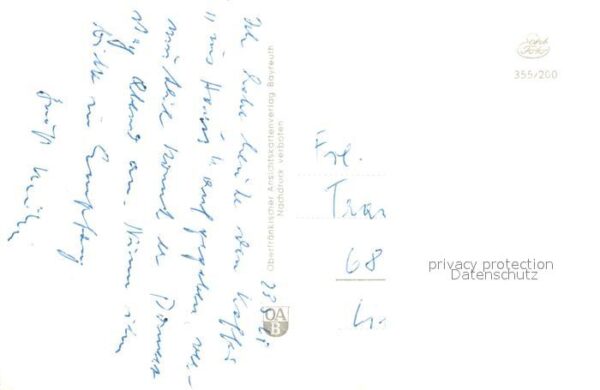 Ich habe heute den Koffer
mir Heinz aufgegeben, ver-
mutlich kommt er Donners-
tag Abend an. Nimm ihn
bitte in Empfang
Gruß
Oberfränkischer Ansichtskartenverlag Bayreuth
Nachdruck verboten
OA
B
355/200
Frl.
68
privacy protection
Datenschutz